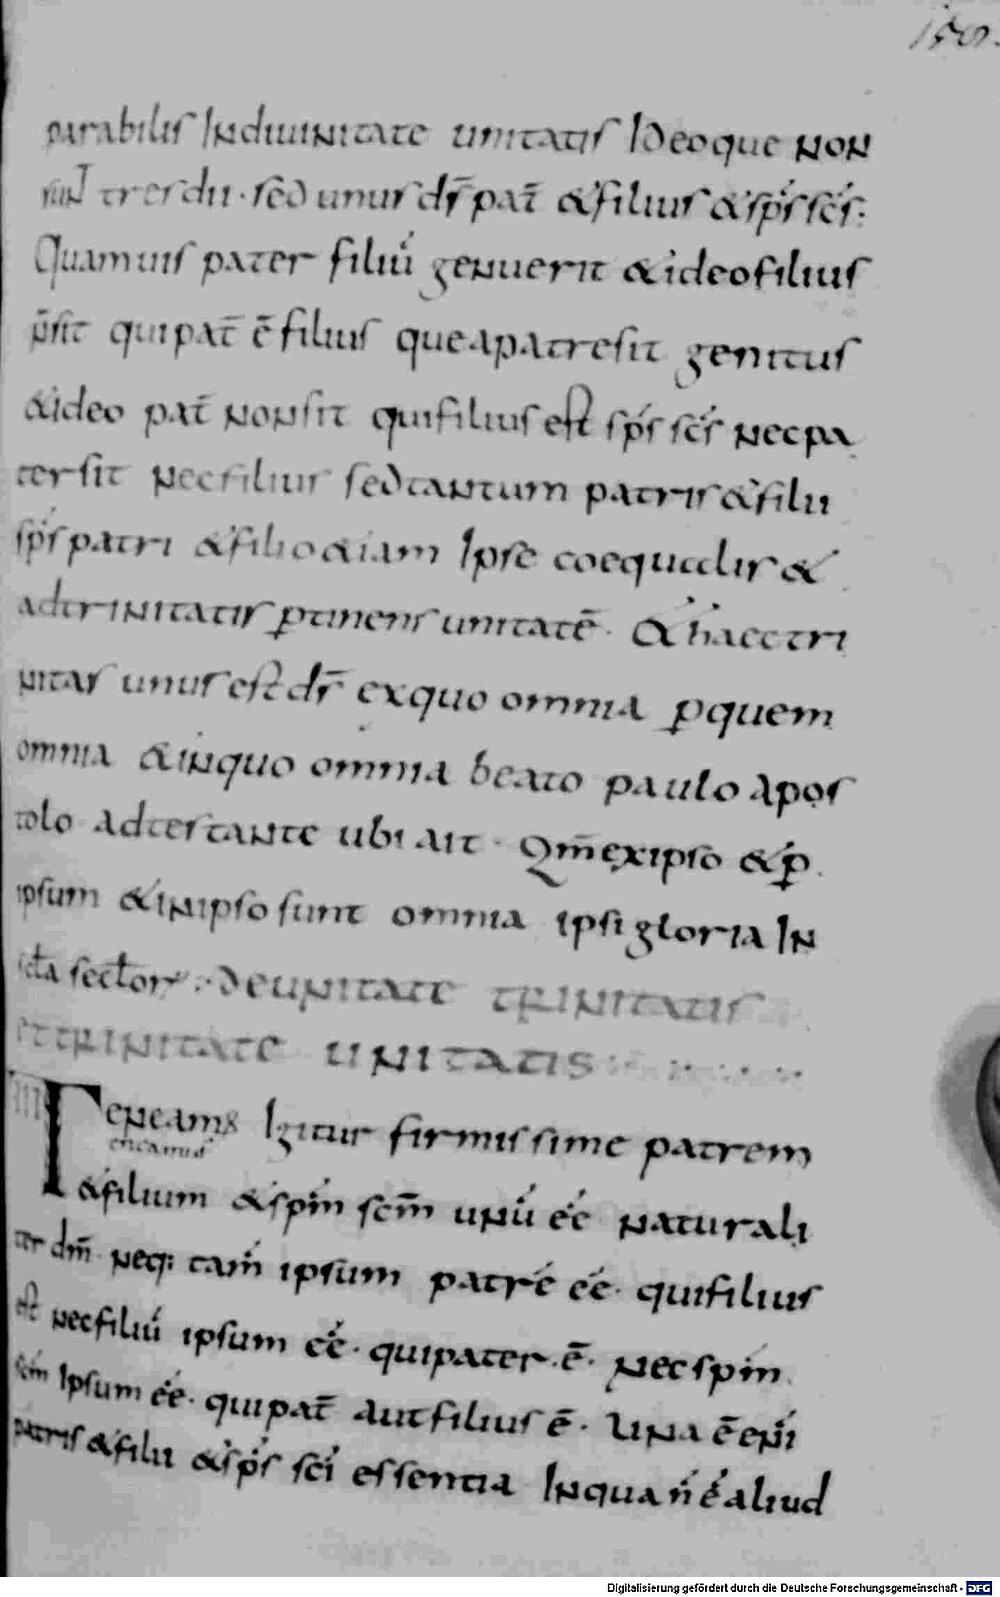 150.
parabilis Indiuinitate unitatis Ideoque non
sunt tres dii · sed unus ds̄ pat̄ & filius & sps̄ scs̄:
Quamuis pater filiū genuerit & ideo filius
n̄ sit qui pat̄ ē filius que a patre sit genitus
& ideo pat̄ non sit qui filius est sps̄ scs̄ nec pa
ter sit nec filius sed tantum patris & filii
sps̄ patri & filio & iam Ipse coequalis &
ad trinitatis ꝑtinens unitatē · & haec tri
nitas unus est ds̄ ex quo omnia ꝑ quem
omnia & in quo omnia beato paulo apos
tolo adtestante ubi ait · Qm̄ ex ipso & ꝑ
ipsum & in ipso sunt omnia ipsi gloria In
sc̄la sec̄lor · : De unitate trinitatis
et trinitate unitatis
III Teneam; Igitur firmissime patrem
eneamus
& filium & spm̄ scm̄ unū ēē naturali
ter dm̄ · neq; tam̄ ipsum patrē ēē · qui filius
est nec filiū ipsum ēē · qui pater · ē · nec spm̄
scm̄ Ipsum ēē · qui pat̄ aut filius ē · Una ē eni̅
patris & filii & sps̄ sci̅ essentia In qua n̄ ē aliud
Digitalisierung gefördert durch die Deutsche Forschungsgemeinschaft - DFG